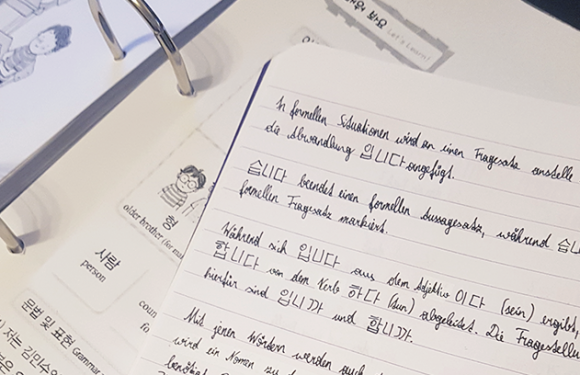 배워 봐요 Let's Learn!
In formellen Situationen wird an einen Fragesatz anstelle
die Abwandlung 입니다 angefügt.
습니다 beendet einen formellen Aussagesatz, während
formellen Fragesatz markiert.
Während sich 입니다 aus dem Adjektiv 이다 (sein) ergibt
합니다 von dem Verb 하다 (tun) abgeleitet. Die Fragestellung
hierfür sind 입니까 und 합니까.
Mit jenen Wördern werden auch
wird ein Nomen zu
benötigt
형
older brother (for
사람
person
문법 및 표현 Grammar
저는 김민수